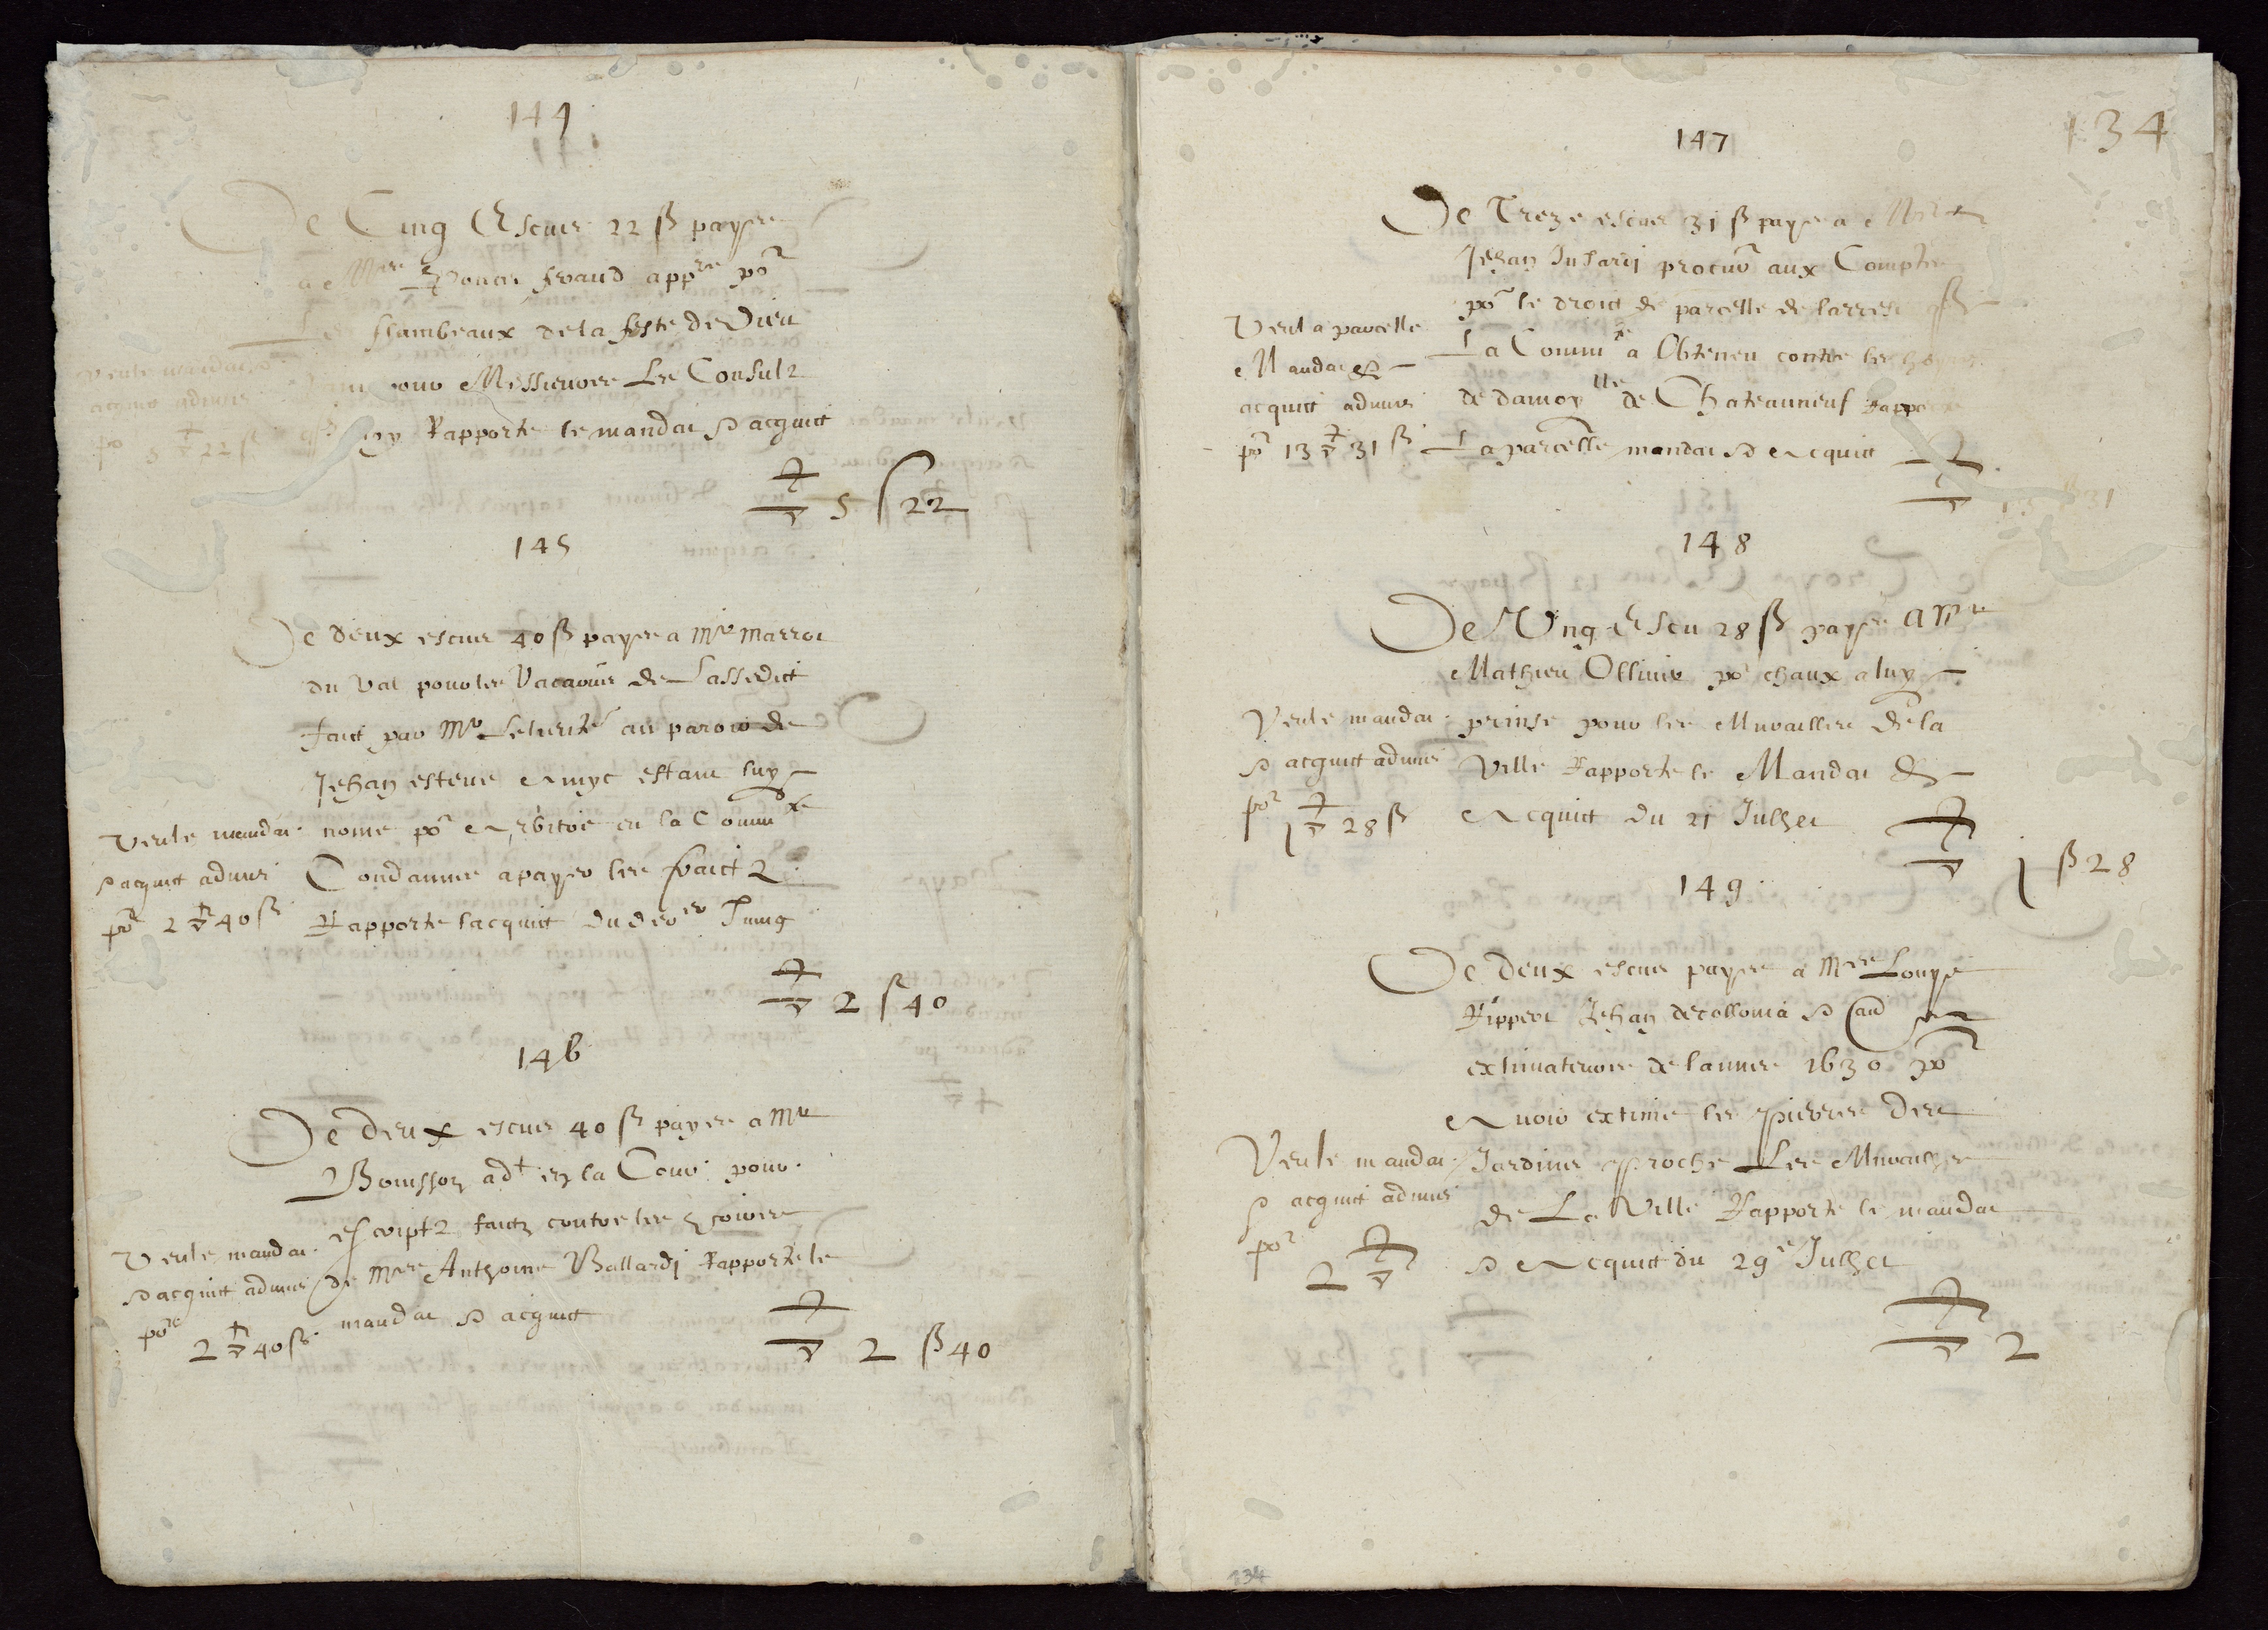 144
De Cinq Escus 22 ß payes
a Mre Ponce fraud appre por
Les flambeaux de la feste de Dieu
pour Messieurs Les Consulz
Rapporte le mandat & acquit
5 ß 22
Veu le mandat &
acquit admis
po 5 22 ß
145
De deux escus 40 ß payes a Mre marrot
du Val pour les Vacaons de Lassedict
faict par Mre au parois de
Jehan esteve estant luy
nome por Arbitre en la Commte
Condamne a payer les fraictz
Rapporte lacquit du der Juing
2 ß 40
Veu le mandat
& acquit admis
por 2 40 ß
146
De deux escus 40 ß payes a Mre
Bouisson adt en la Cour pour
escriptz faictz contre les hoires
de Mre Anthoine Ballardj Rapporte le
mandat & acquit
2 ß 40
Veu le mandat
& acquit admis
por 2 40 ß
134
147
De Treze escus 31 ß payes a Mre
Jehan Insardj procur aux Comptes
por le droict de parcelle de larrest q
La Commte a Obteneu contre les hoires
de damoylle de Chateauneuf Rapporte
La parcelle mandat & Acquit
13 ß 31
Veu la parcelle
Mandat &
acquit admis
por 13 31 ß
148
De Ung Escu 28 ß payes a Mre
Mathieu Ollivie por chaux a luy
prinse pour les Murailles de la
Ville Rapporte le Mandat &
Acquit du 21 Julhet
1 ß 28
Veu le mandat
& acquit admis
por 1 28 ß
149
De deux escus payes a Mre Louys
Rippert Jehan de collonia &
extimateurs de lannee 1630 por
Avoir extime les pierres des
Jardins proche Les Murailhes
de La Ville Rapporte le mandat
& Acquit du 29e Julhet
2
Veu le mandat
& acquit admis
por
2
134